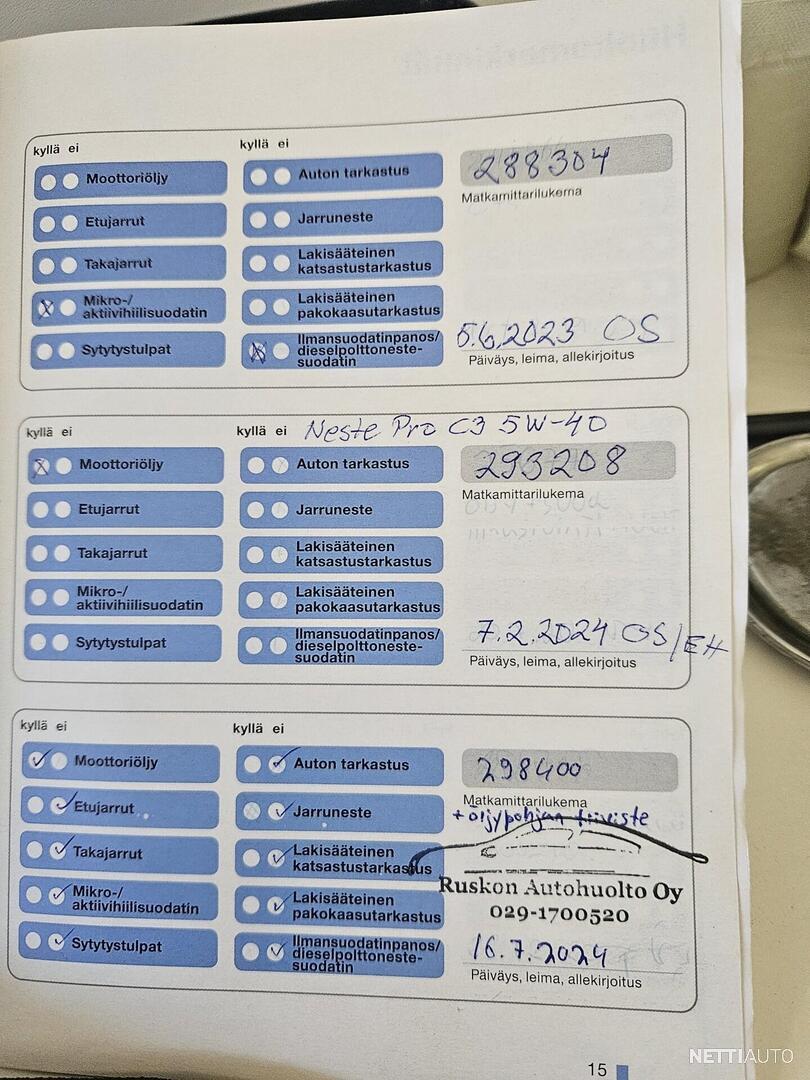 kyllä ei
kyllä ei
Moottoriöljy
Auton tarkastus
288304
Matkamittarilukema
Etujarrut
Jarruneste
Takajarrut
Lakisääteinen
katsastustarkastus
Mikro-/
aktiivihiilisuodatin
Lakisääteinen
pakokaasutarkastus
Sytytystulpat
Ilmansuodatinpanos/
dieselpolttoneste-
suodatin
5.6.2023 OS
Päiväys, leima, allekirjoitus
kyllä ei
kyllä ei
Neste Pro C3 5W-40
Moottoriöljy
Auton tarkastus
293208
Matkamittarilukema
Etujarrut
Jarruneste
Takajarrut
Lakisääteinen
katsastustarkastus
Mikro-/
aktiivihiilisuodatin
Lakisääteinen
pakokaasutarkastus
Sytytystulpat
Ilmansuodatinpanos/
dieselpolttoneste-
suodatin
7.2.2024 OS/EH
Päiväys, leima, allekirjoitus
kyllä ei
kyllä ei
Moottoriöljy
Auton tarkastus
298400
Matkamittarilukema
+ öljypohjan tiiviste
Etujarrut
Jarruneste
Takajarrut
Lakisääteinen
katsastustarkastus
Ruskon Autohuolto Oy
029-1700520
Mikro-/
aktiivihiilisuodatin
Lakisääteinen
pakokaasutarkastus
Sytytystulpat
Ilmansuodatinpanos/
dieselpolttoneste-
suodatin
16.7.2024
Päiväys, leima, allekirjoitus
15
NETTIAUTO